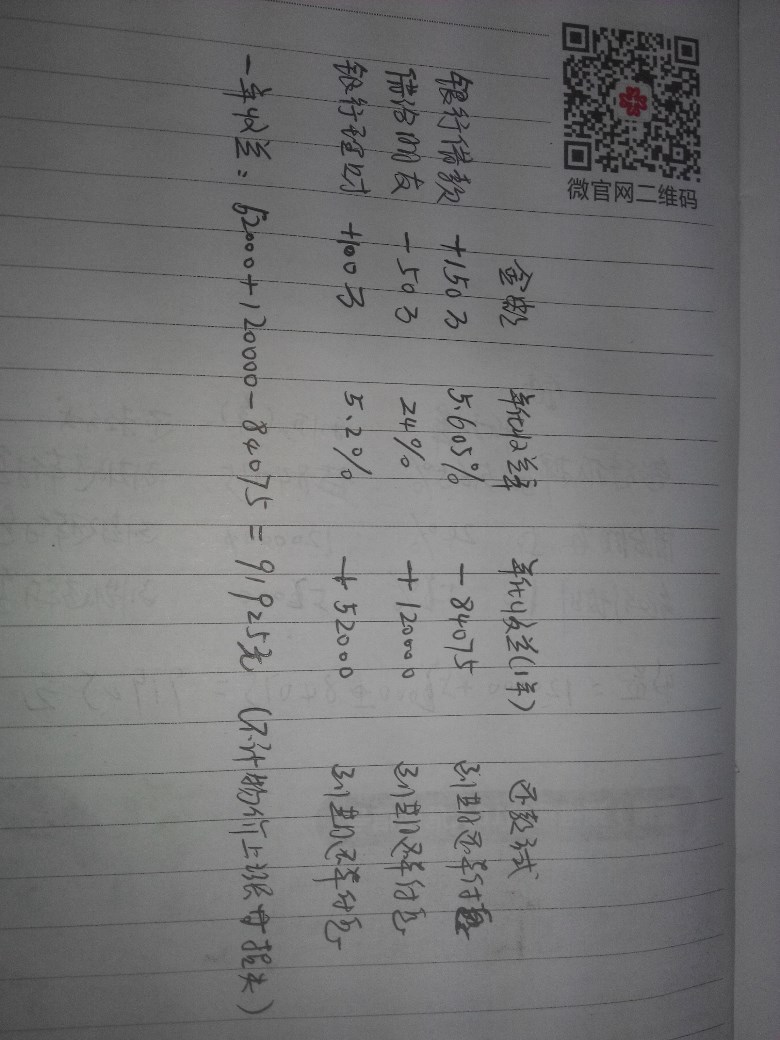 微官网二维码
金额 年化收益率 年化收益(1年) 还款方式
银行借款 +150万 5.605% -84075 到期还本付息
借给朋友 -50万 24% +120000 到期还本付息
银行理财 +100万 5.2% +52000 到期还本付息
一年收益: 52000+120000-84075=91925元 (不计物价上涨等损失)